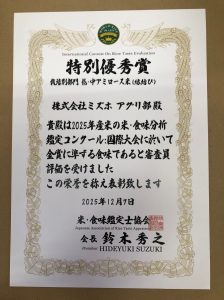 International Contest On Rice Taste Evaluation
特別優秀賞
栽培別部門 低・中アミロース米(縁結び)
株式会社ミズホ アグリ部 殿
貴殿は2025年産米の米・食味分析
鑑定コンクール:国際大会に於いて
金賞に準ずる食味であると審査員
評価を受けました
この栄誉を称え表彰致します
2025年12月7日
米・食味鑑定士協会
Japanese Association of Rice Taste Appraisers
会長 鈴木秀之
President HIDEYUKI SUZUKI